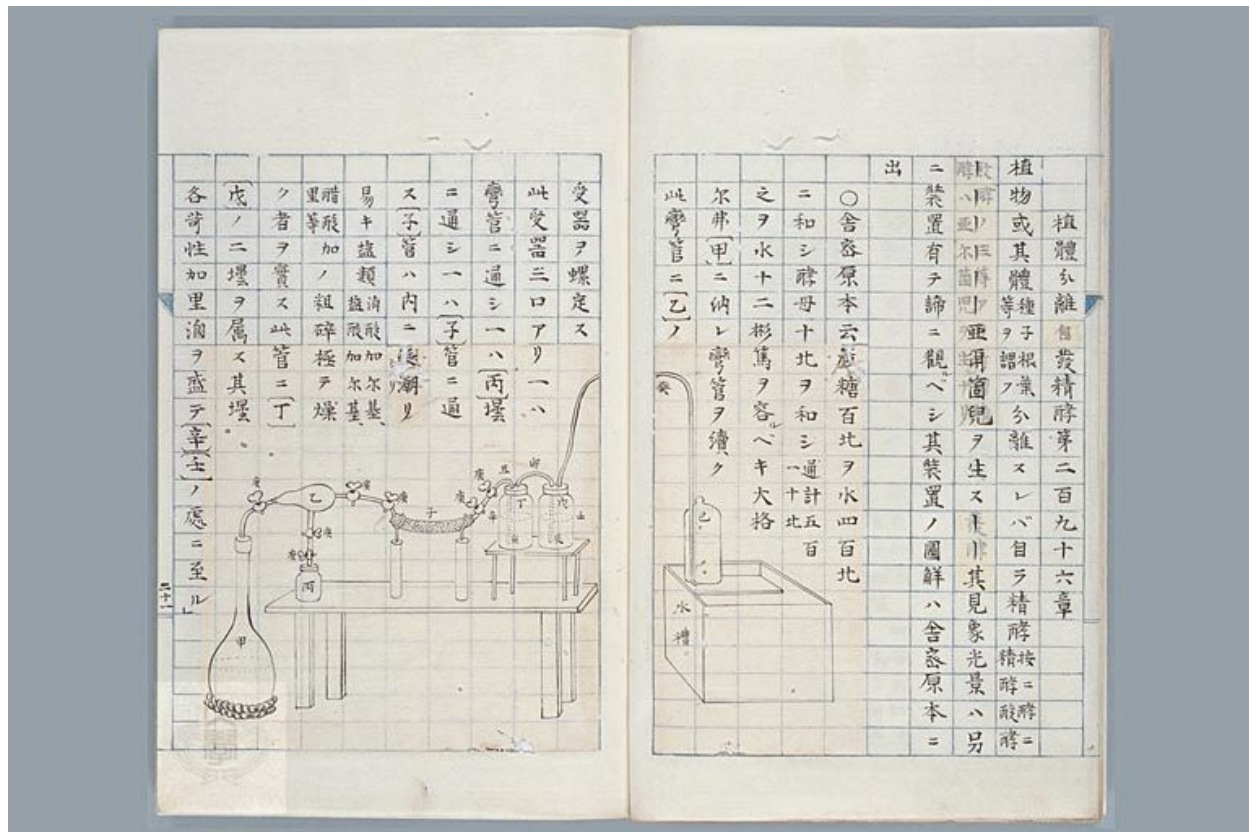 植體分離自發精酵第二百九十六章
植物或其體種子根葉等ヲ謂フ分離スレバ自ラ精酵按ニ酵ニ精酵酸酵ニ
亜爾箇兒ヲ生ス其見象光景ハ另
ニ装置有テ諦ニ觀ルベシ其装置ノ圖解ハ舎密原本ニ
出
○舎密原本云蔗糖百北ヲ水四百北
ニ和シ酵母十北ヲ和シ通計五百一十北
之ヲ水十二彬篤ヲ容ルベキ大格
尔弗〔甲〕ニ納レ彎管ヲ續ク
此彎管ニ〔乙〕ノ
癸
己
水槽
受器ヲ螺定ス
此受器三口アリ一ハ
彎管ニ通シ一ハ〔丙〕壜
ニ通シ一ハ〔子〕管ニ通
ス〔子〕管ハ内ニ潮リ
易キ塩類消酸加尔基、塩酸加尔基、
醋酸加里等ノ粗碎極テ燥
ク者ヲ實ス此管ニ〔丁〕
〔戊〕ノ二壜ヲ属ス其壜
各苛性加里滷ヲ盛テ〔辛〕〔壬〕ノ處ニ至ル
卯
丑
戊
丁
庚
子
庚
庚
乙
庚
庚
庚
丙
甲
二十一